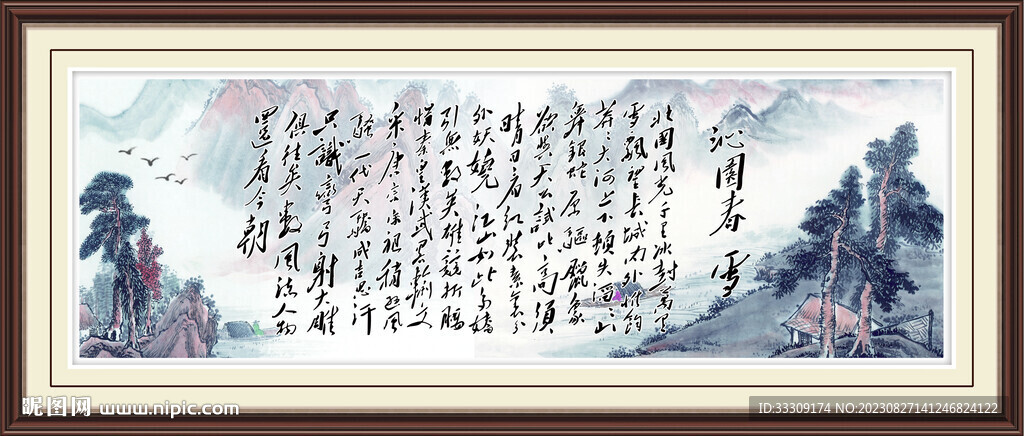 沁園春 雪
北国風光千里冰封萬里
雪飄望長城内外惟餘
莽莽大河上下頓失滔滔山
舞銀蛇原驅臘象
欲與天公試比高須
晴日看紅裝素裹分
外妖嬈江山如此多嬌
引無數英雄競折腰
惜秦皇漢武略輸文
采唐宗宋祖稍遜風
騷一代天驕成吉思汗
只識彎弓射大雕
俱往矣數風流人物
還看今朝
昵图网 www.nipic.com
ID:33309174 NO:20230827141246824122